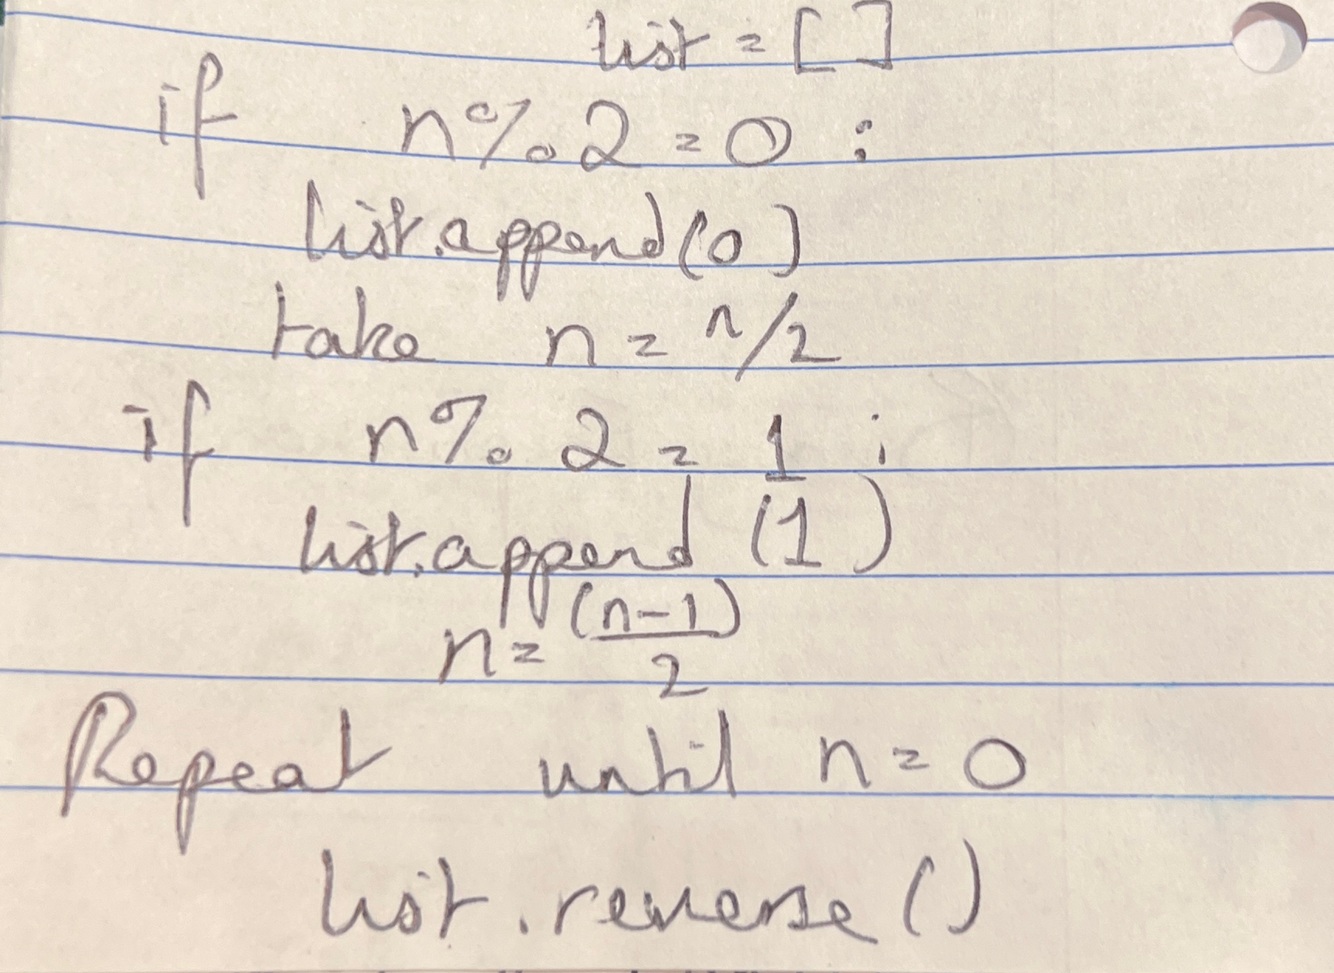 list = []
if n%2 = 0 :
list.append(0)
take n = n/2
if n% 2 = 1 :
list.append (1)
n = (n-1)/2
Repeat until n = 0
list.reverse()